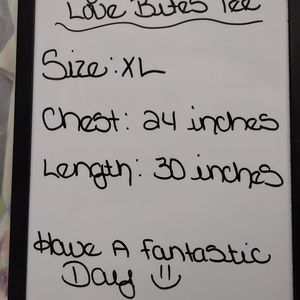 Love Bites Tee
Size: XL
Chest: 24 inches
Length: 30 inches
Have A fantastic
Day